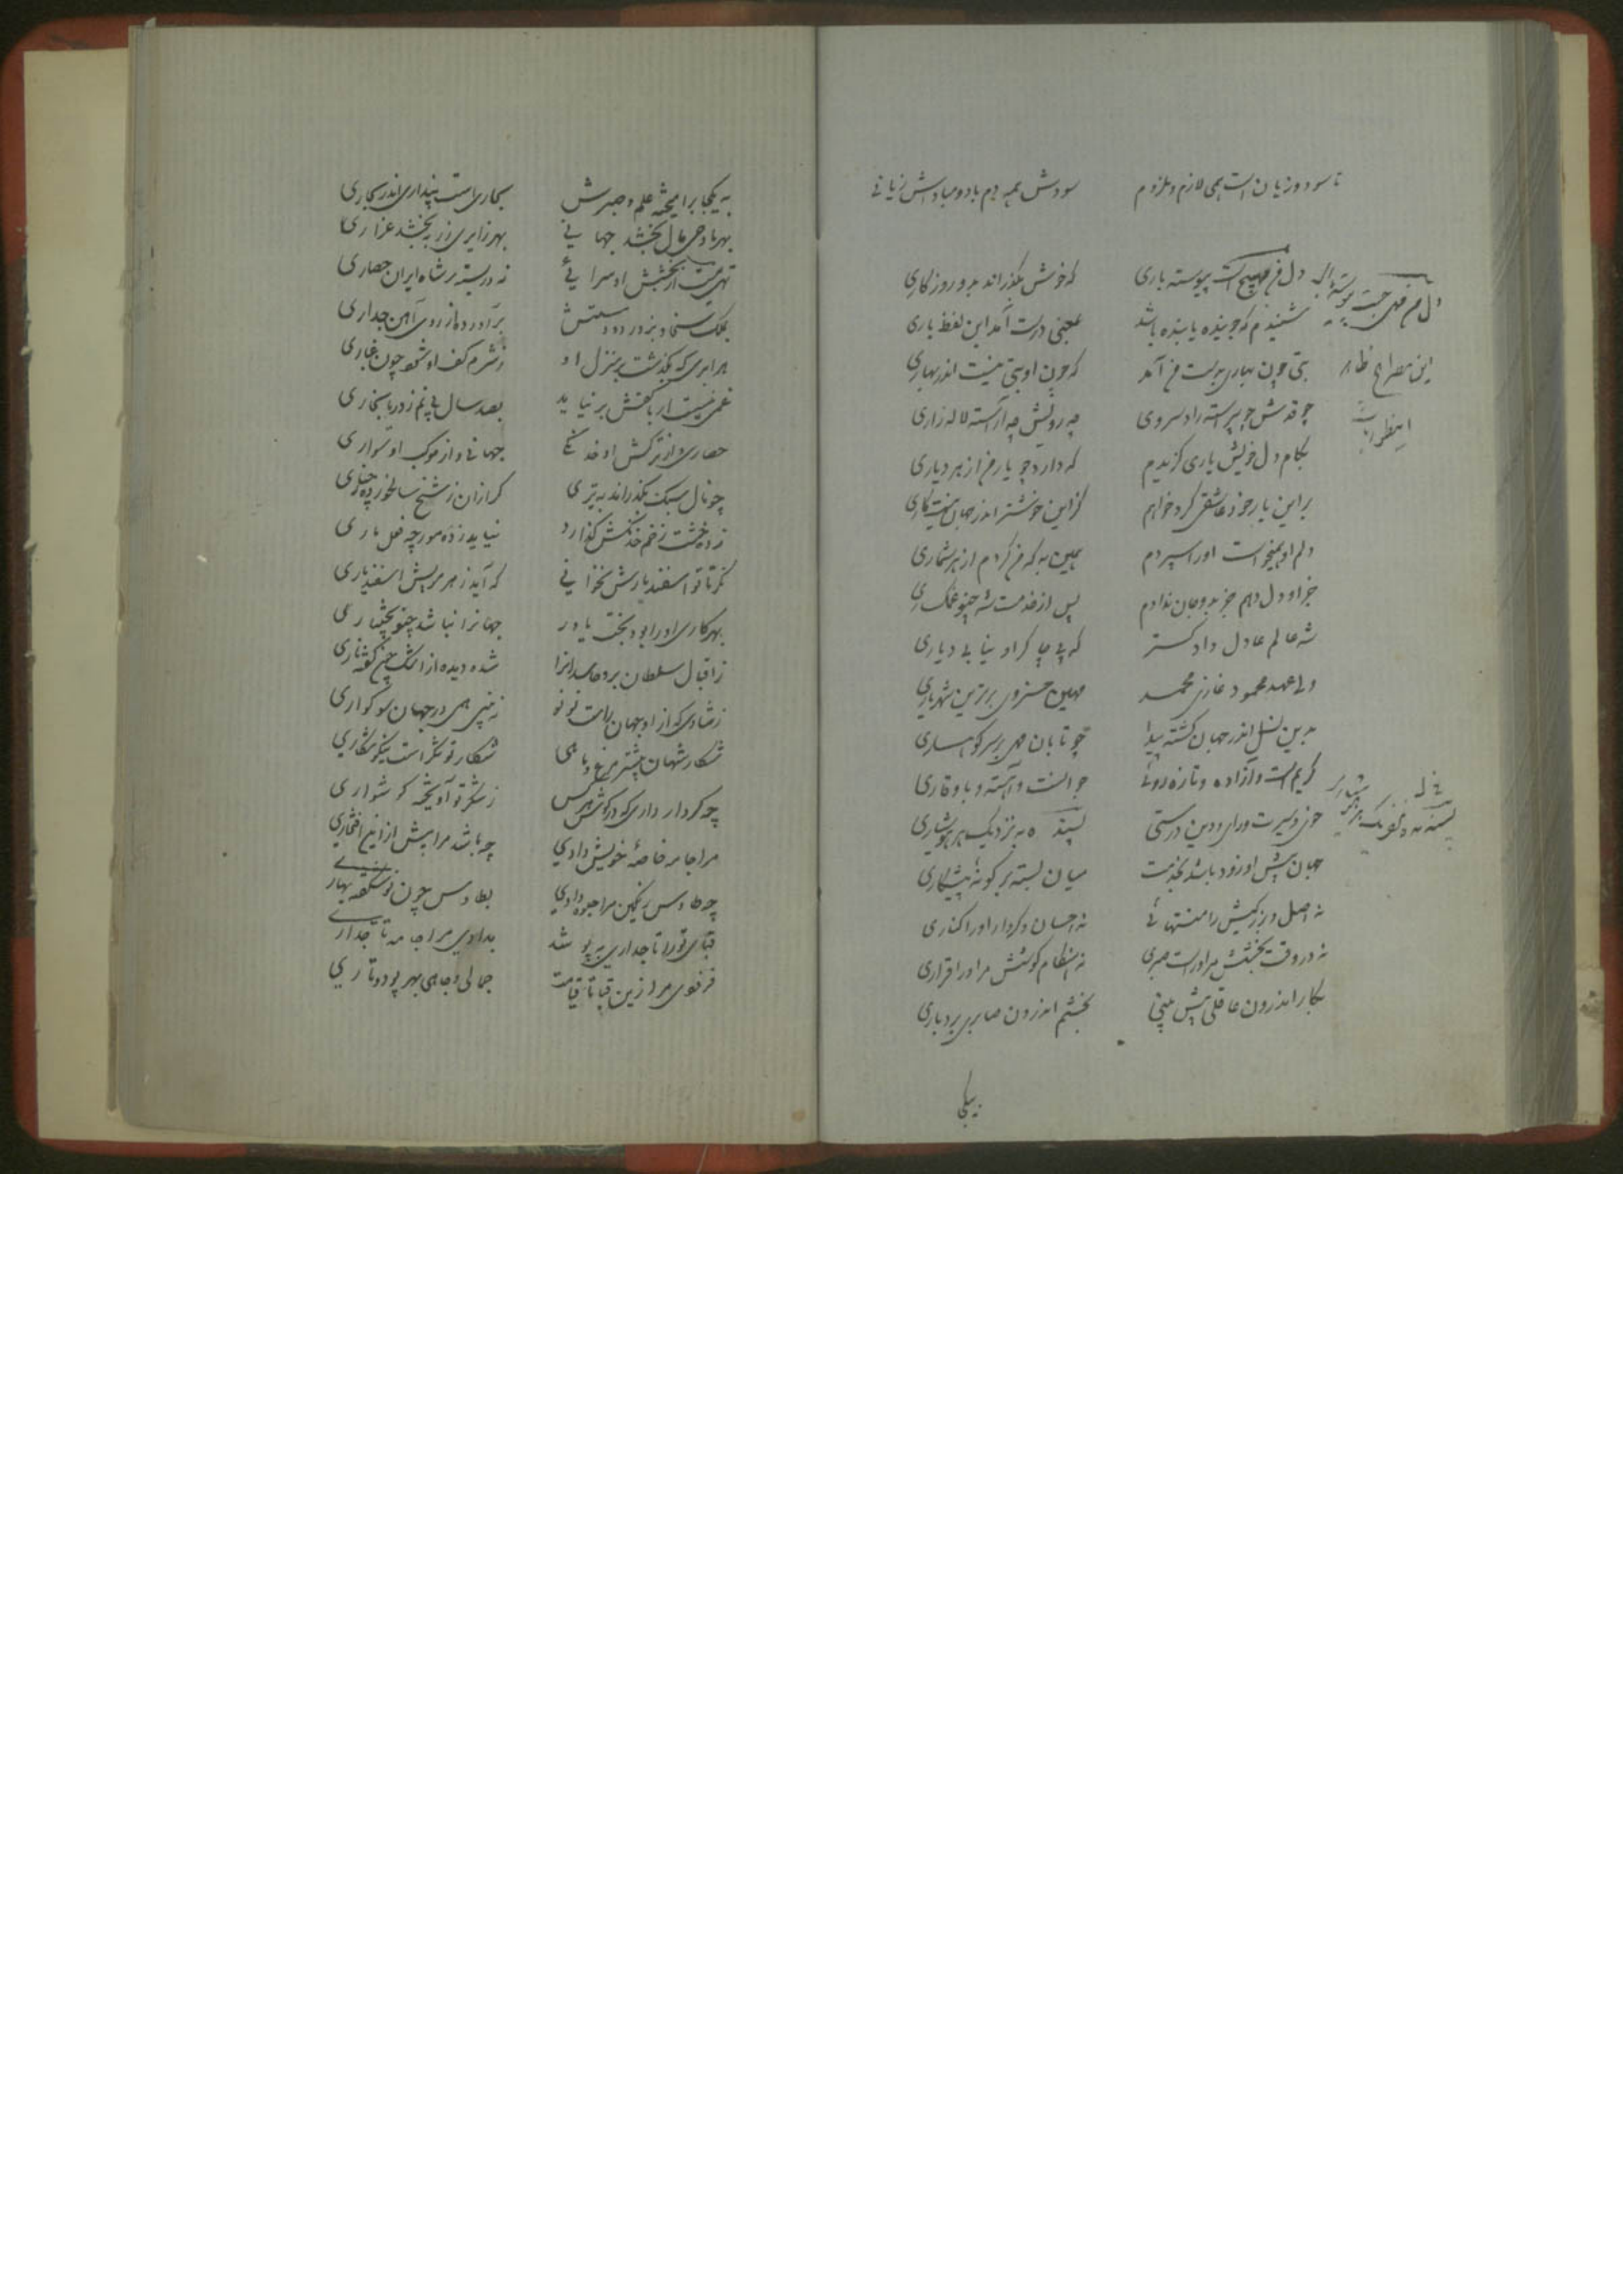 تا سود و زیان است همی لازم و ملزوم سودش همه دم باد و مبادش زیانی
دل من همی جست پیوسته یاری که خوش بگذراند بدو روزگاری
شنیدم که جوینده یابنده باشد بمعنی درست آمد این لفظ باری
بتی چون بهاری بدست من آمد که چون او بتی نیست اندر بهاری
چو قدش چو پیراسته زاد سروی چه رویش چه آراسته لاله زاری
بکام دل خویش یاری گزیدم که دارد چو یار من از هر دیاری
بر این یار خود عاشقی کرد خواهم کزین خوشتر اندر جهان نیست کاری
دلم او همیخواست او را سپردم همین به که من کردم از هر شماری
جز او دل دهم جز بدو جان ندادم پس از خدمت شه چنو غمگساری
شه عالم عادل دادگستر که بی چاکر او نیابی دیاری
ولی عهد محمود غازی محمد مهین خسروی برترین شهریاری
بدین نسل اندر جهان گشته پیدا چو تابان مهی بر سر کوهساری
کریم است و آزاده و تازه روئی جوانست و آهسته و باوقاری
خوی و سیرت و رای و دین درستی پسندیده نزدیک هر هوشیاری
جهان پیش او زود باشد بخدمت میان بسته بر گونه پیشکاری
نه اصل و بزرگیش را منتهائی نه احسان و کردار او را کناری
نه در وقت بخشش مر او راست صبری نه هنگام کوشش مر او را قراری
بکار اندرون عاقلی پیش بینی بخشم اندرون صابری بردباری
دل من همی جست پیوسته یاری
این مصراع ظاهر
اینطور باید
پسندیده نزدیک هر هوشیار
به یکجا برآمیخته علم و صبرش بجاری است پنداری اندر بجاری
بهر مادحی مال بخشد جهانی بهر زایری زر ببخشد غراری
تهی نیست از بخشش او سرائی نه در بسته بر شاه ایران حصاری
بملک سخا و بزور دو دستش برآورد از روی آهن جداری
هر ابری که بگذشت بر منزل او ز شرم کف او شود چون غباری
غمی نیست ار با کفش برنیاید بصد سال پی نم ز دریا بخاری
حصاری و از ترکش او خدنگی جهانی و از موکب او سواری
چو نال سبک بگذراند به تیری گر از آن ز شنخ سالخورده چناری
ز ده خشت زخم خدنگش گذارد نیاید ز ده مورچه فعل ماری
نگر تا تو اسفندیارش نخوانی که آید ز هر مویش اسفندیاری
بهر کاری او را بود بخت یاور جهانرا نباشد چنو بختیاری
ز اقبال سلطان بر حاسدانرا شده دیده از اشک چون گوشواری
ز شادی که از او جهان راست نو نو نه بینی همی در جهان سوگواری
شکار شهان بیشتر مرغ و ماهی شکار تو شکر است نیکو شکاری
چه کردار داری که در گوش هر کس ز شکر تو آویخته گوشواری
مرا جامه خاصه خویش دادی چه باشد مرا بیش از این افتخاری
چو طاوس رنگین مرا جلوه دادی بطاوس چون نوشکفته بهاری
قبای تو را تاجداری بپوشد بدادی مرا جامه تاجداری
فزودی مرا زین قبا تا قیامت جمالی و جاهی بهر پود و تاری